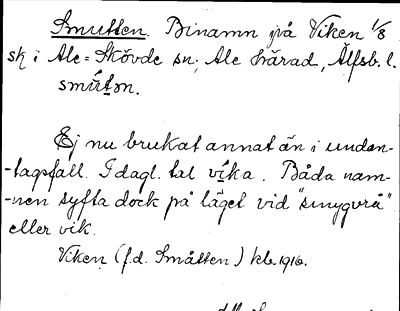 Smutten. Binamn på Viken 1/8
sk i Ale-Skövde sn, Ale härad, Älfsb. l.
smút̀on.
Ej nu brukat annat än i undan-
-tagsfall. I dagl. tal víka. Båda nam-
-nen syfta dock på läget vid "smygvrå"
eller vik.
Viken (f.d. Småtten) kb. 1916.